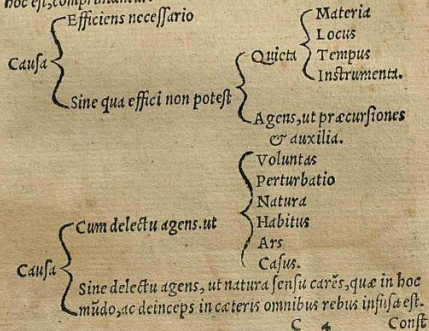 hoc est, comprimantur.
Efficiens necessario
Causa
Sine qua effici non potest
Quieta
Materia
Locus
Tempus
Instrumenta.
Agens, ut præcursiones
& auxilia.
Causa
Cum delectu agens. ut
Voluntas
Perturbatio
Natura
Habitus
Ars
Casus.
Sine delectu agens, ut natura sensu carẽs, quæ in hoc
mũdo, ac deinceps in cæteris omnibus rebus infusa est.
C 4 Const